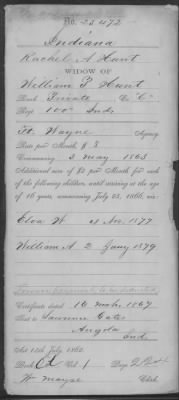 No. 23472
Indiana
Rachel A Hunt
WIDOW OF
William P Hunt
Rank Private Co "C"
Regt 100th Ind
Ft. Wayne Agency
Rate per Month, $ 8
Commencing 3 May 1863
Additional sum of $2 per Month for each
of the following children, until arriving at the age
of 16 years, commencing July 25, 1866, viz:
1877
William A 2 Jany 1879
Certificate dated 16 Mch. 1867
Sent to Lawrence Gates
Angola
Ind
Act 14th July, 1862.
Book Vol. 1 Page
W mayse Clerk